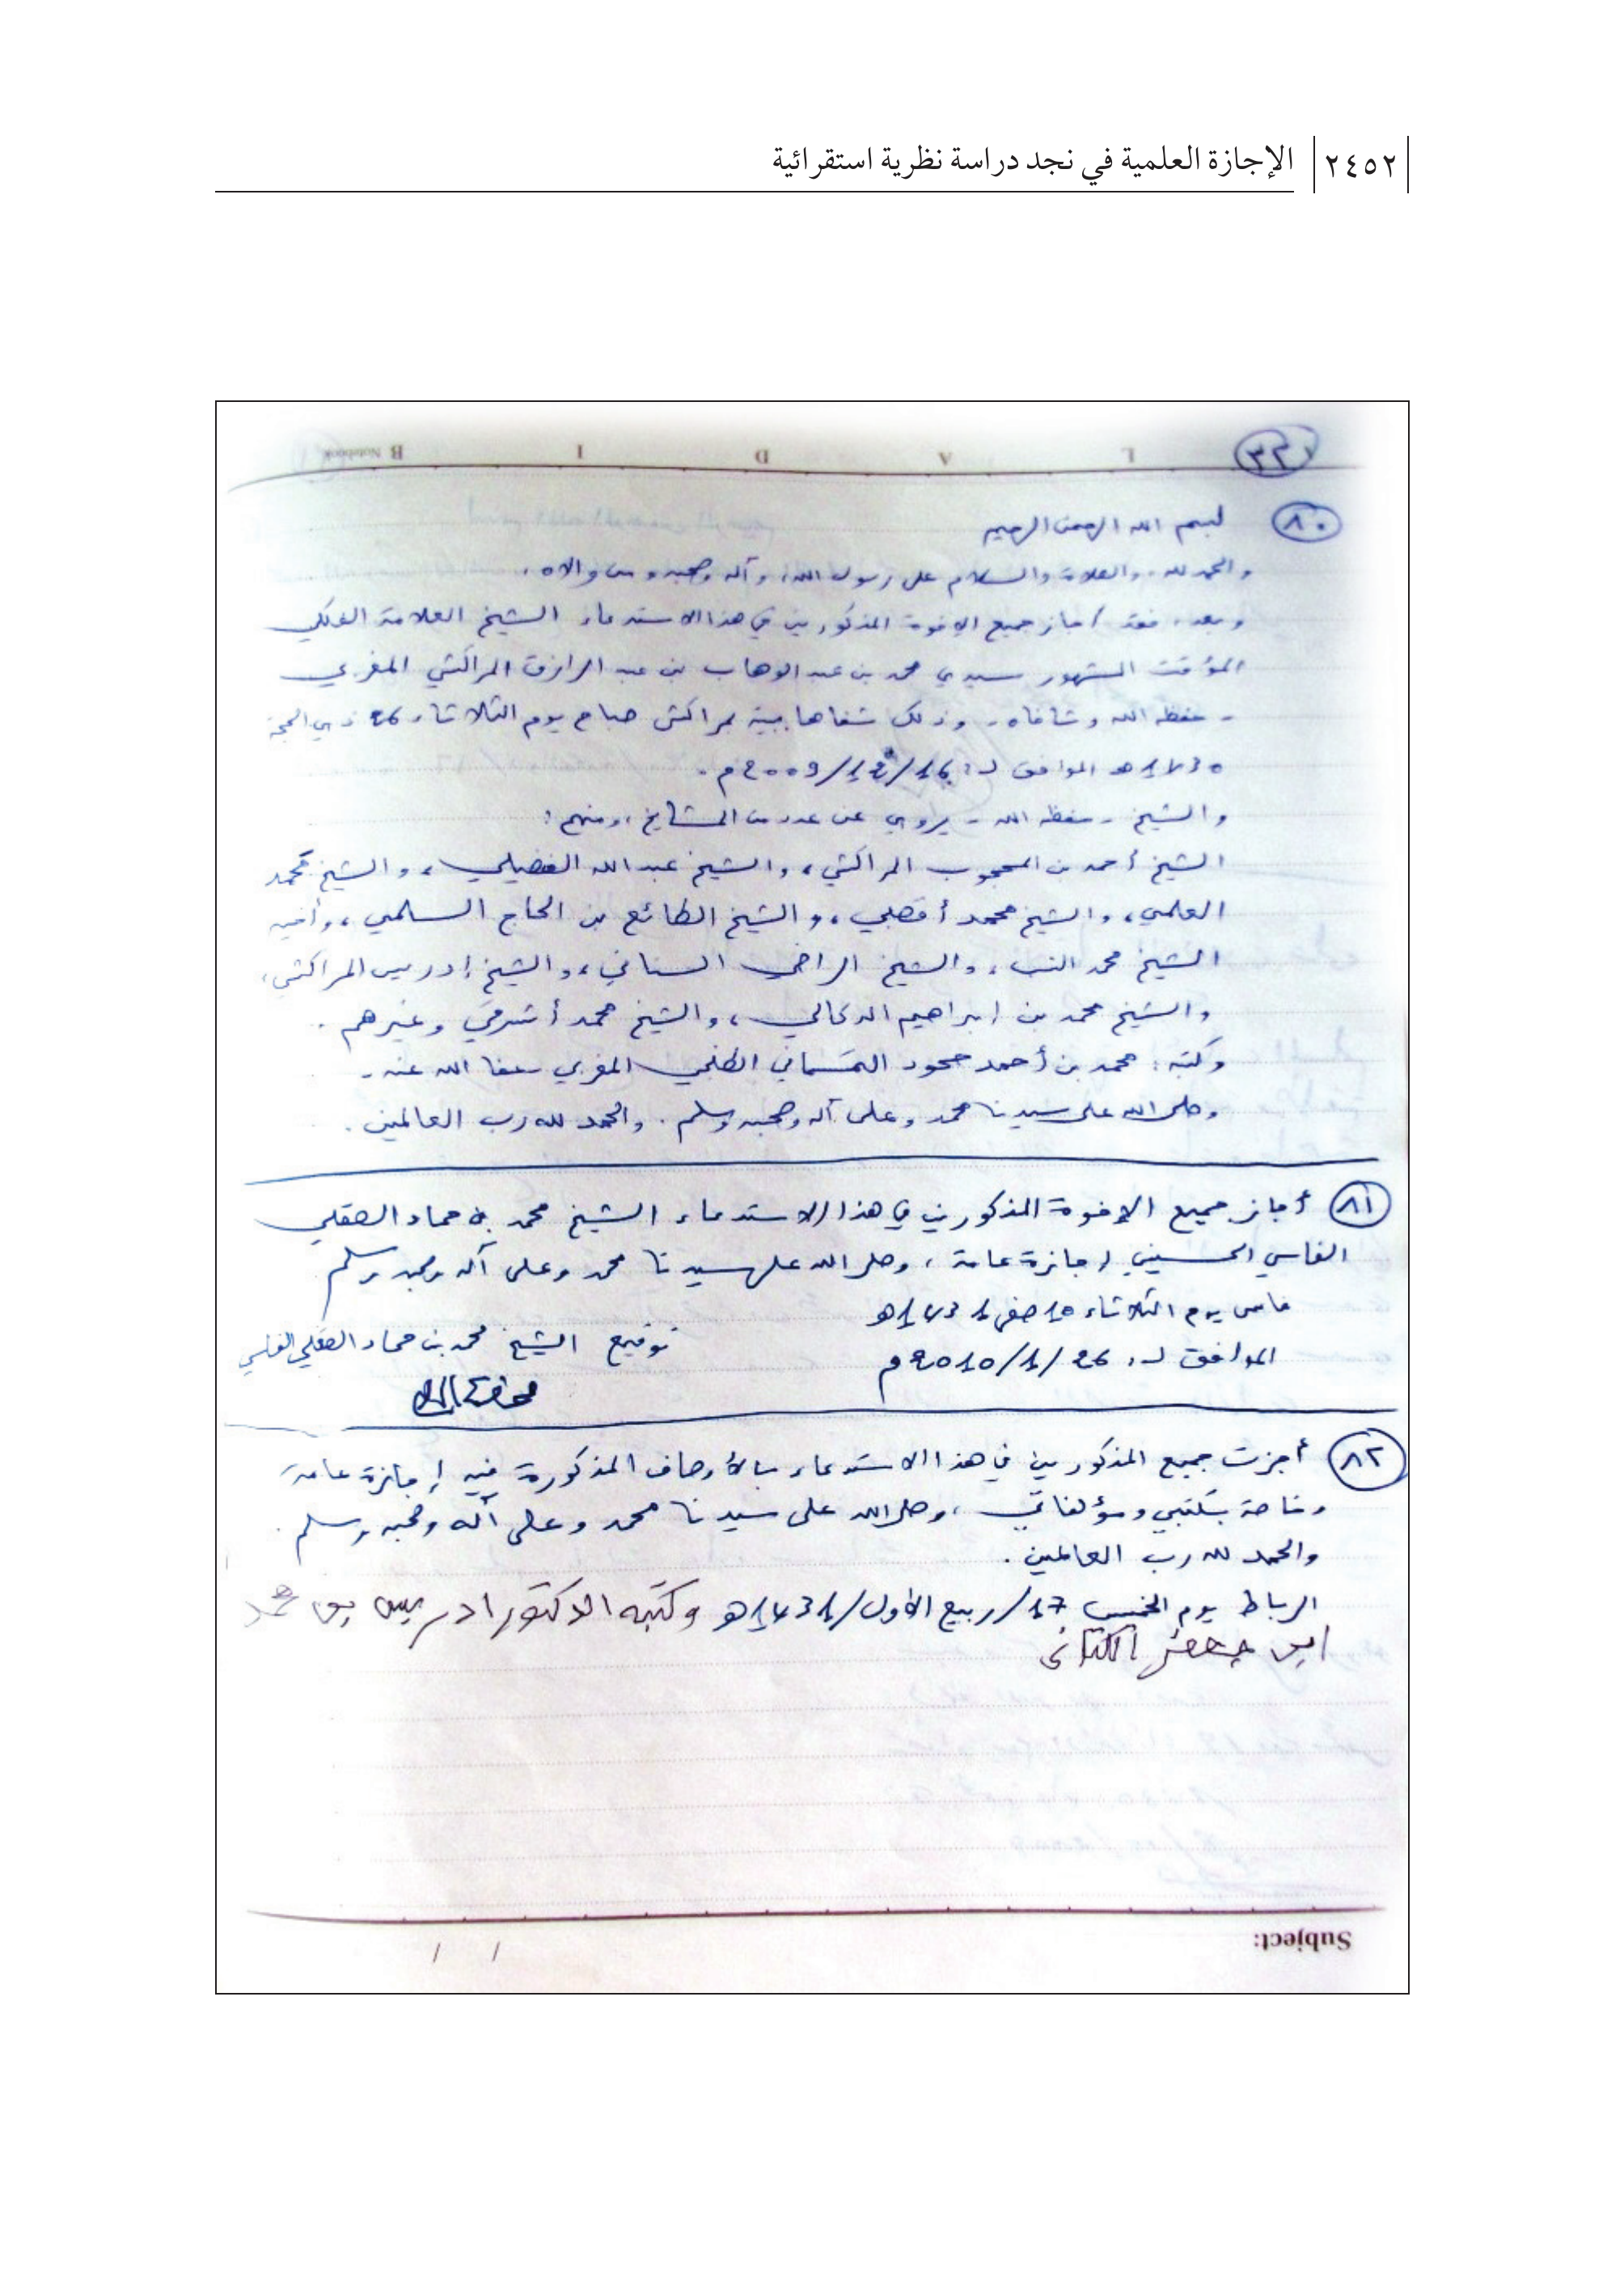 ٢٤٥٢ الإجازة العلمية في نجد دراسة نظرية استقرائية
L A D I B Notebook
٣٣
٨٠ بسم الله الرحمن الرحيم
والحمد لله، والصلاة والسلام على رسول الله، وآله وصحبه ومن والاه.
وبعد، فقد أجاز جميع الإخوة المذكورين في هذا الاستدعاء الشيخ العلامة الفلكي
المؤقت الشهور سيدي محمد بن عبد الوهاب بن عبد الرازق المراكشي المغربي
- حفظه الله وشافاه - وذلك شفاها ببيته بمراكش صباح يوم الثلاثاء 26 ذي الحجة
1430هـ الموافق لـ: /12/2009م.
والشيخ - حفظه الله - يروي عن عدد من المشايخ، ومنهم:
الشيخ أحمد بن المحجوب المراكشي، والشيخ عبد الله الفضيلي، والشيخ محمد
العلمي، والشيخ محمد أقصبي، والشيخ الطائع بن الحاج السلمي، وأخيه
الشيخ محمد، والشيخ الراضي السناني، والشيخ إدريس المراكشي،
والشيخ محمد بن إبراهيم الدكالي، والشيخ محمد أشرقي وغيرهم.
وكتبه: محمد بن أحمد حمود التمسماني الطنجي المغربي - عفا الله عنه -
وصلى الله على سيدنا محمد وعلى آله وصحبه وسلم. والحمد لله رب العالمين.
٨١ أجاز جميع الإخوة المذكورين في هذا الاستدعاء الشيخ محمد بن حماد الصقلي
الفاسي الحسيني إجازة عامة، وصلى الله على سيدنا محمد وعلى آله وصحبه وسلم
فاس يوم الثلاثاء 10 صفر 1431هـ
الموافق لـ: 26/1/2010م
توقيع الشيخ محمد بن حماد الصقلي الفاسي
٨٢ أجزت جميع المذكورين في هذا الاستدعاء بالأوصاف المذكورة فيه إجازة عامة
وخاصة بكتبي ومؤلفاتي، وصلى الله على سيدنا محمد وعلى آله وصحبه وسلم.
والحمد لله رب العالمين.
الرباط يوم الخميس 17/ربيع الأول/1431هـ وكتبه الدكتور ادريس بن محمد
ابن جعفر الكتاني
Subject:
/ /